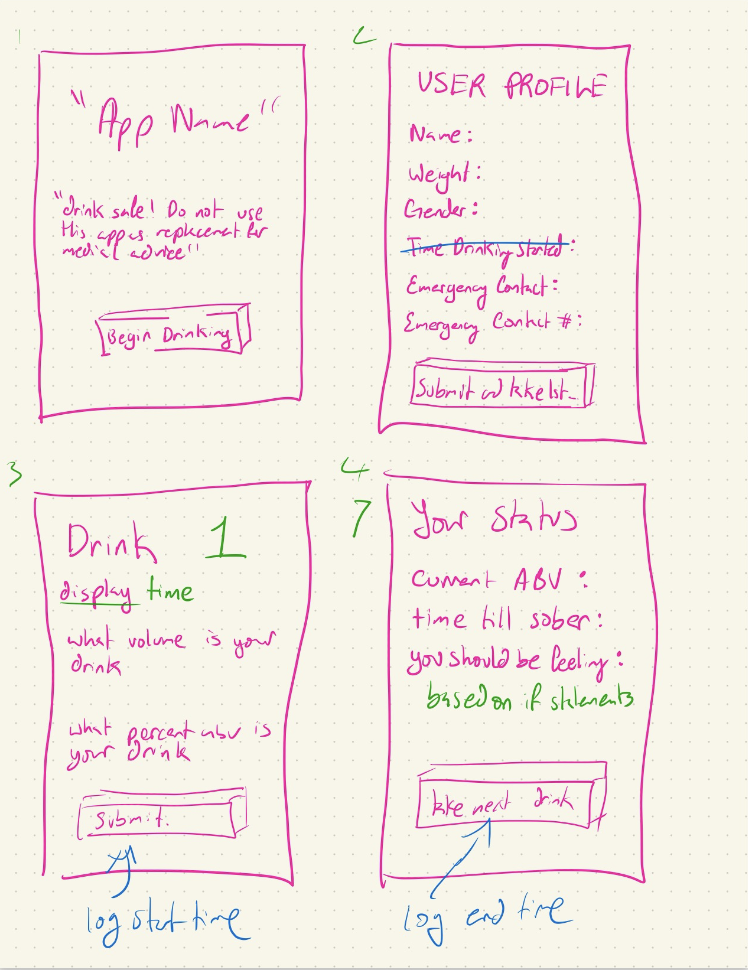 1
"App Name"
"drink safe! Do not use
this app as replacement for
medical advice"
Begin Drinking
2
USER PROFILE
Name:
Weight:
Gender:
Time Drinking Started:
Emergency Contact:
Emergency Contact #:
Submit
3
Drink 1
display time
what volume is your
drink
what percent abv is
your drink
Submit.
log start time
4
7
Your Status
Current ABV :
time till sober:
you should be feeling:
based on if statements
take next drink
log end time